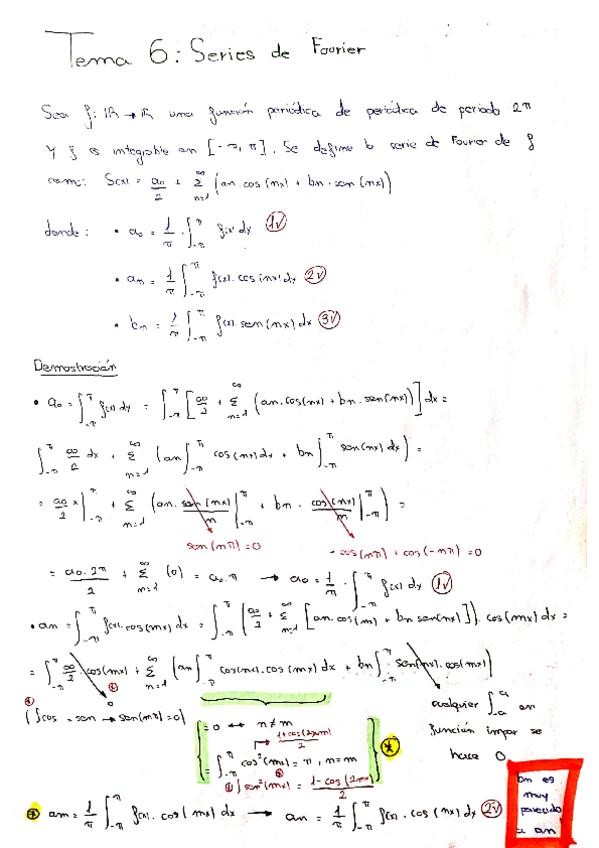 Tema 6: Series de Fourier
Sea f: ℝ → ℝ una función periódica de periódica de periodo 2π
y f es integrable en [-π, π]. Se define la serie de Fourier de f
como: S(x) = a₀/2 + Σ_{n=1}^{∞} (an · cos(nx) + bn · sen(nx))
donde: • a₀ = 1/π · ∫_{-π}^{π} f(x) dx (1√)
• an = 1/π ∫_{-π}^{π} f(x) · cos(nx) dx (2√)
• bn = 1/π ∫_{-π}^{π} f(x) · sen(nx) dx (3√)
Demostración
• a₀ = ∫_{-π}^{π} f(x) dx = ∫_{-π}^{π} [a₀/2 + Σ_{n=1}^{∞} (an · cos(nx) + bn · sen(nx))] dx =
∫_{-π}^{π} a₀/2 dx + Σ_{n=1}^{∞} (an ∫_{-π}^{π} cos(nx) dx + bn ∫_{-π}^{π} sen(nx) dx) =
= a₀/2 x |_{-π}^{π} + Σ_{n=1}^{∞} (an · sen(nx)/n |_{-π}^{π} + bn · cos(nx)/n |_{-π}^{π}) =
sen(nπ) = 0 - cos(nπ) + cos(-nπ) = 0
= a₀ · 2π/2 + Σ_{n=1}^{∞} (0) = a₀ · π → a₀ = 1/π · ∫_{-π}^{π} f(x) dx (1√)
• an = ∫_{-π}^{π} f(x) · cos(mx) dx = ∫_{-π}^{π} [a₀/2 + Σ_{n=1}^{∞} [an · cos(nx) + bn sen(nx)]] · cos(mx) dx =
= ∫_{-π}^{π} a₀/2 cos(mx) + Σ_{n=1}^{∞} (an ∫_{-π}^{π} cos(nx) · cos(mx) dx + bn ∫_{-π}^{π} sen(nx) · cos(mx))
0
(∫cos = sen → sen(mπ) = 0)
cualquier ∫_{-a}^{a} en
función impar se
hace 0
= 0 ↔ n ≠ m
1+cos(2mx)/2
= ∫_{-π}^{π} cos²(mx) = π, n = m
∫sen²(mx) = 1-cos(2mx)/2
am = 1/π ∫_{-π}^{π} f(x) · cos(mx) dx → an = 1/π ∫_{-π}^{π} f(x) · cos(nx) dx (2√)
bn es
muy
parecido
a an